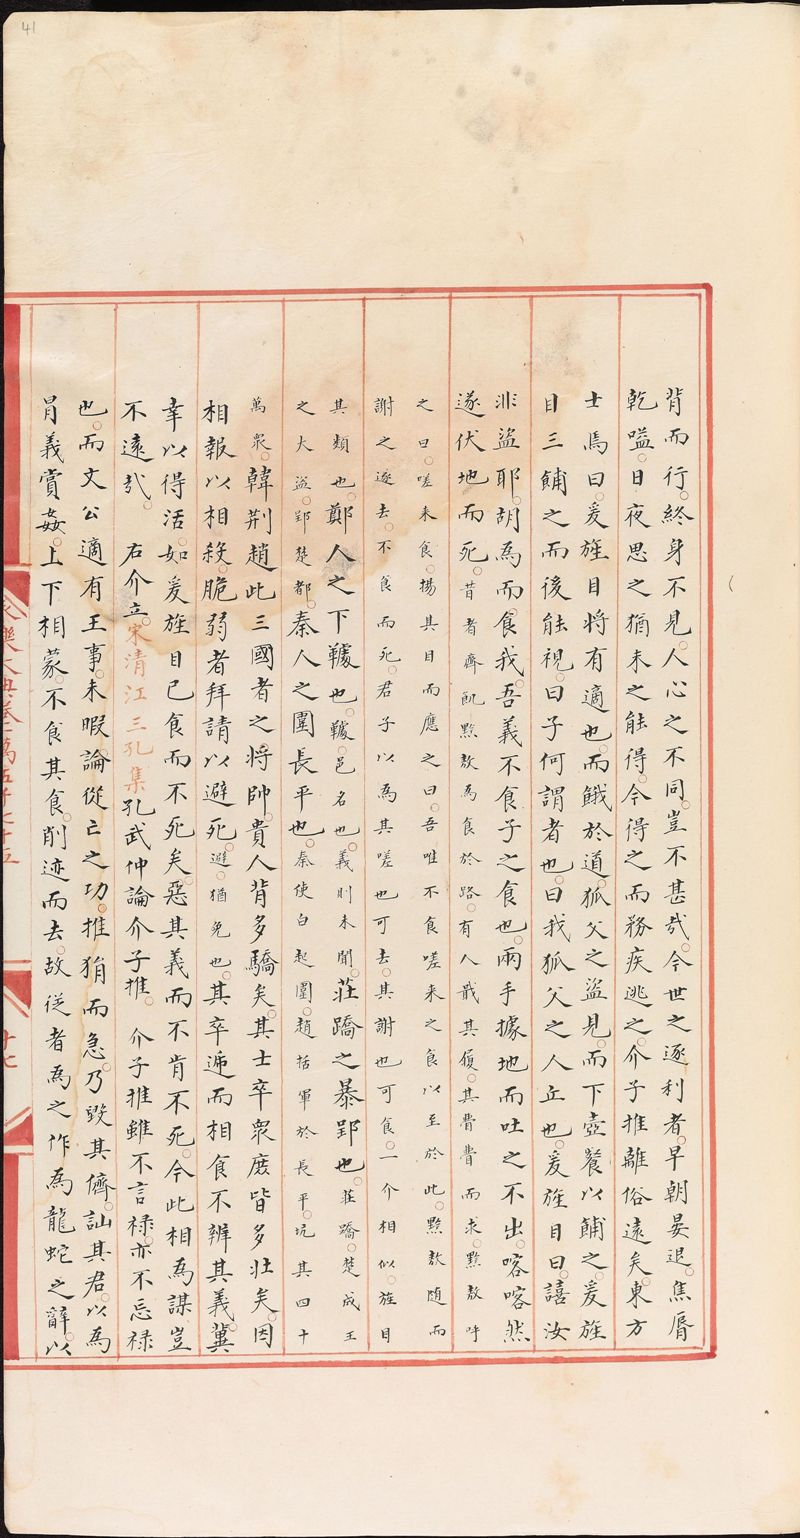 41
背而行。終身不見。人心之不同。豈不甚哉。今世之逐利者。早朝晏退。焦脣
乾嗌。日夜思之。猶未之能得。今得之而務疾逃之。介子推離俗遠矣。東方
士焉曰。爰旌目將有適也。而餓於道。狐父之盜見。而下壺餐以餔之。爰旌
目三餔之而後能視。曰子何謂者也。曰我狐父之人丘也。爰旌目曰。譆汝
非盜耶。胡為而食我。吾義不食子之食也。兩手據地而吐之不出。喀喀然
遂伏地而死。昔者齊飢黔敖為食於路。有人戢其履。其費費而求。黔敖呼
之曰。嗟来食。揚其目而應之曰。吾唯不食嗟来之食以至於此。黔敖随而
謝之遂去。不食而死。君子以為其嗟也可去。其謝也可食。一介相似。旌目
其類也。鄭人之下䩜也。䩜。邑名也。義則未聞。莊蹻之暴郢也。莊蹻。楚成王
之大盜。郢楚都。秦人之圍長平也。秦使白起圍。趙括軍於長平。坑其四十
萬衆。韓荆趙此三國者之將帥。貴人背多驕矣。其士卒衆庶皆多壯矣。因
相報以相殺。脆弱者拜請以避死。避。猶免也。其卒遞而相食不辨其義。冀
幸以得活。如爰旌目已食而不死矣。惡其義而不肯不死。今此相為謀豈
不遠哉。 右介立。宋清江三孔集孔武仲論介子推。 介子推雖不言禄。亦不忘禄
也。而文公適有王事。未暇論從亡之功。推狷而急。乃毀其儕。訕其君。以為
冐義賞姦。上下相蒙。不食其食。削迹而去。故從者為之作為龍蛇之辭。以
永樂大典卷一萬五千七十五
十七